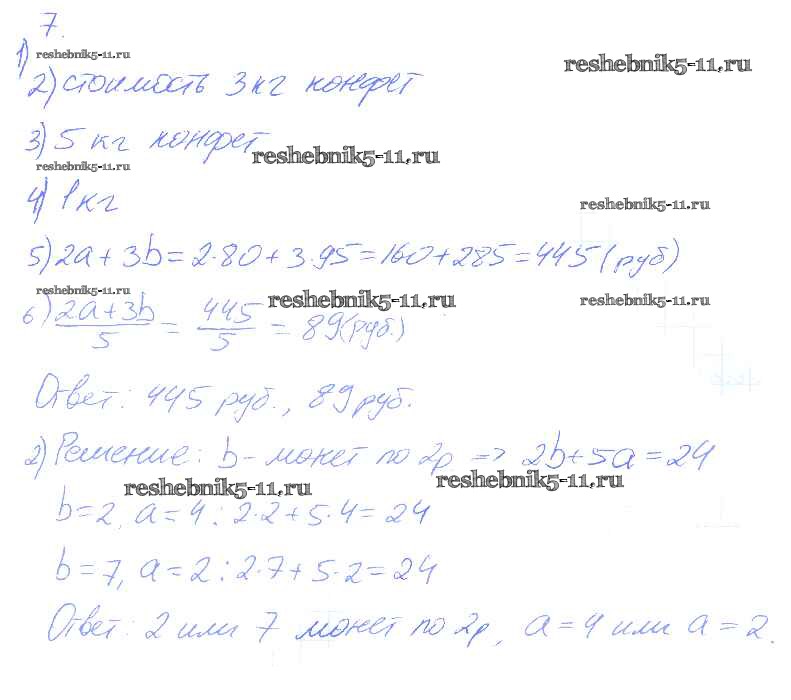 7.
1) reshebnik5-11.ru
reshebnik5-11.ru
2) стоимость 3 кг конфет
3) 5 кг конфет
reshebnik5-11.ru
reshebnik5-11.ru
4) 1 кг
reshebnik5-11.ru
5) 2a + 3b = 2·80 + 3·95 = 160 + 285 = 445 (руб)
reshebnik5-11.ru
reshebnik5-11.ru
reshebnik5-11.ru
6) (2a + 3b)/5 = 445/5 = 89 (руб.)
Ответ: 445 руб., 89 руб.
2) Решение: b - монет по 2р => 2b + 5a = 24
reshebnik5-11.ru
reshebnik5-11.ru
b = 2, a = 4 : 2·2 + 5·4 = 24
b = 7, a = 2 : 2·7 + 5·2 = 24
Ответ: 2 или 7 монет по 2р, a = 4 или a = 2.